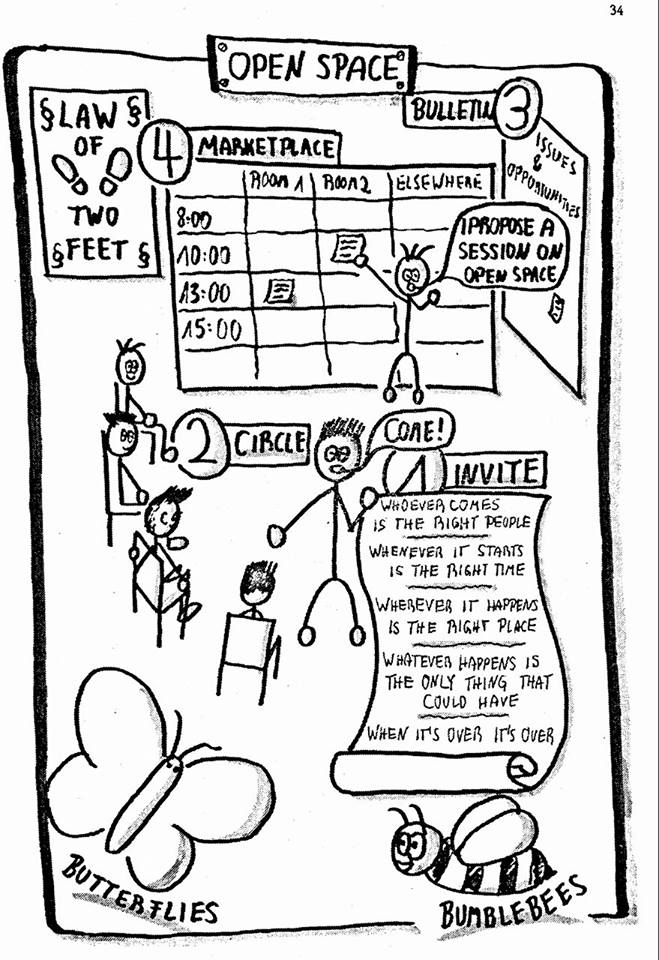 34
OPEN SPACE
§ LAW §
OF
TWO
§ FEET §
BULLETIN 3
ISSUES
&
OPPORTUNITIES
4 MARKETPLACE
ROOM 1 ROOM 2 ELSEWHERE
8:00
10:00
13:00
15:00
I PROPOSE A
SESSION ON
OPEN SPACE
2 CIRCLE
COME!
1 INVITE
WHOEVER COMES
IS THE RIGHT PEOPLE
WHENEVER IT STARTS
IS THE RIGHT TIME
WHEREVER IT HAPPENS
IS THE RIGHT PLACE
WHATEVER HAPPENS IS
THE ONLY THING THAT
COULD HAVE
WHEN IT'S OVER IT'S OVER
BUTTERFLIES
BUMBLEBEES